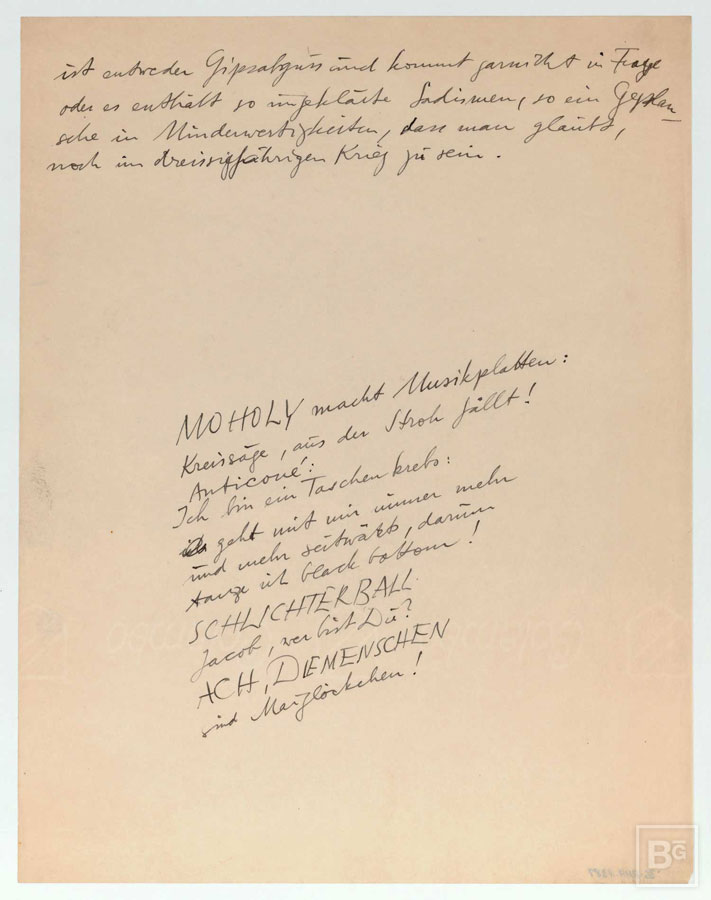 ist entweder Gipsabguss und kommt garnicht in Frage
oder es enthält so ungeklärte Sadismen, so ein Geplan-
sche in Minderwertigkeiten, dass man glaubt,
noch im dreissigjährigen Krieg zu sein.
MOHOLY macht Musikplatten:
Kreissäge, aus der Stroh fällt!
Anticoué:
Ich bin ein Taschenkrebs:
es geht mit mir immer mehr
und mehr seitwärts, darum
tanze ich black bottom!
SCHLICHTERBALL
Jacob, wer bist Du?
ACH, DIE MENSCHEN
sind Maiglöckchen!
BG